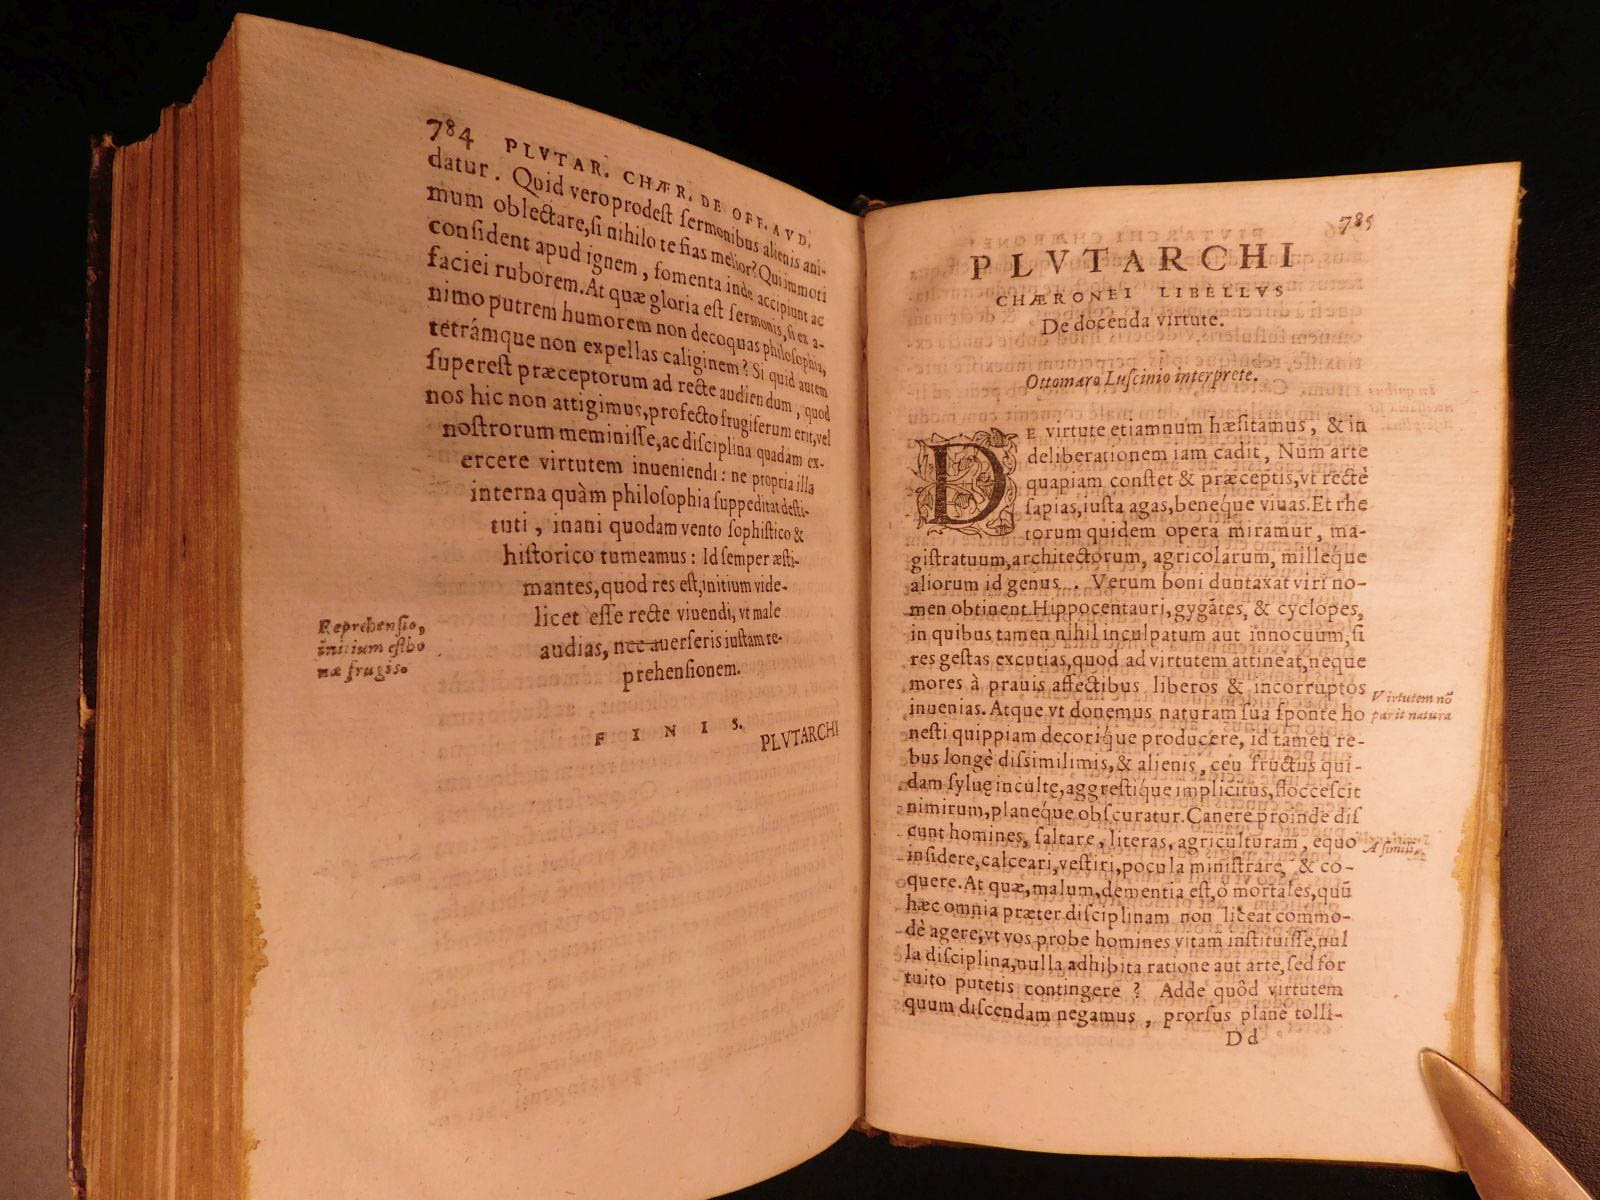 784 PLVTAR. CHÆR. DE OFF. AVD.
datur. Quid vero prodest sermonibus alienis ani-
mum oblectare, si nihilo te fias melior? Qui immoti
consident apud ignem, fomenta inde accipiunt ac
faciei ruborem. At quæ gloria est sermonis, si ex a-
nimo putrem humorem non decoquas philosophia,
tetrámque non expellas caliginem? Si quid autem
superest præceptorum ad recte audiendum, quod
nos hic non attigimus, profecto frugiferum erit, vel
nostrorum meminisse, ac disciplina quadam ex-
ercere virtutem inueniendi: ne propria illa
interna quàm philosophia suppeditat desti-
tuti, inani quodam vento sophistico &
historico tumeamus: Id semper æsti-
mantes, quod res est, initium vide-
licet esse recte viuendi, vt male
audias, nec auerseris iustam re-
prehensionem.
Reprehensio,
initium est bo
næ frugis.
F I N I S.
PLVTARCHI
785
PLVTARCHI
CHÆRONEI LIBELLVS
De docenda virtute.
Ottomaro Luscinio interprete.
DE virtute etiamnum hæsitamus, & in
deliberationem iam cadit, Num arte
quapiam constet & præceptis, vt rectè
sapias, iusta agas, beneque viuas. Et rhe
torum quidem opera miramur, ma-
gistratuum, architectorum, agricolarum, milleque
aliorum id genus. Verum boni duntaxat viri no-
men obtinent Hippocentauri, gygãtes, & cyclopes,
in quibus tamen nihil inculpatum aut innocuum, si
res gestas excutias, quod ad virtutem attineat, neque
mores à prauis affectibus liberos & incorruptos
inuenias. Atque vt donemus naturam sua sponte ho
nesti quippiam decorique producere, id tamen re-
bus longè dissimilimis, & alienis, ceu fructus qui-
dam syluę incultę, aggrestíque implicitus, floccescit
nimirum, planeque obscuratur. Canere proinde dis
cunt homines, saltare, literas, agriculturam, equo
insidere, calceari, vestiri, pocula ministrare, & co-
quere. At quæ, malum, dementia est, ô mortales, quũ
hæc omnia præter disciplinam non liceat commo-
dè agere, vt vos probe homines vitam instituisse, nul
la disciplina, nulla adhibita ratione aut arte, sed for
tuito putetis contingere? Adde quôd virtutem
quum discendam negamus, prorsus plane tolli-
Virtutem nõ
parit natura
A simili.
Dd